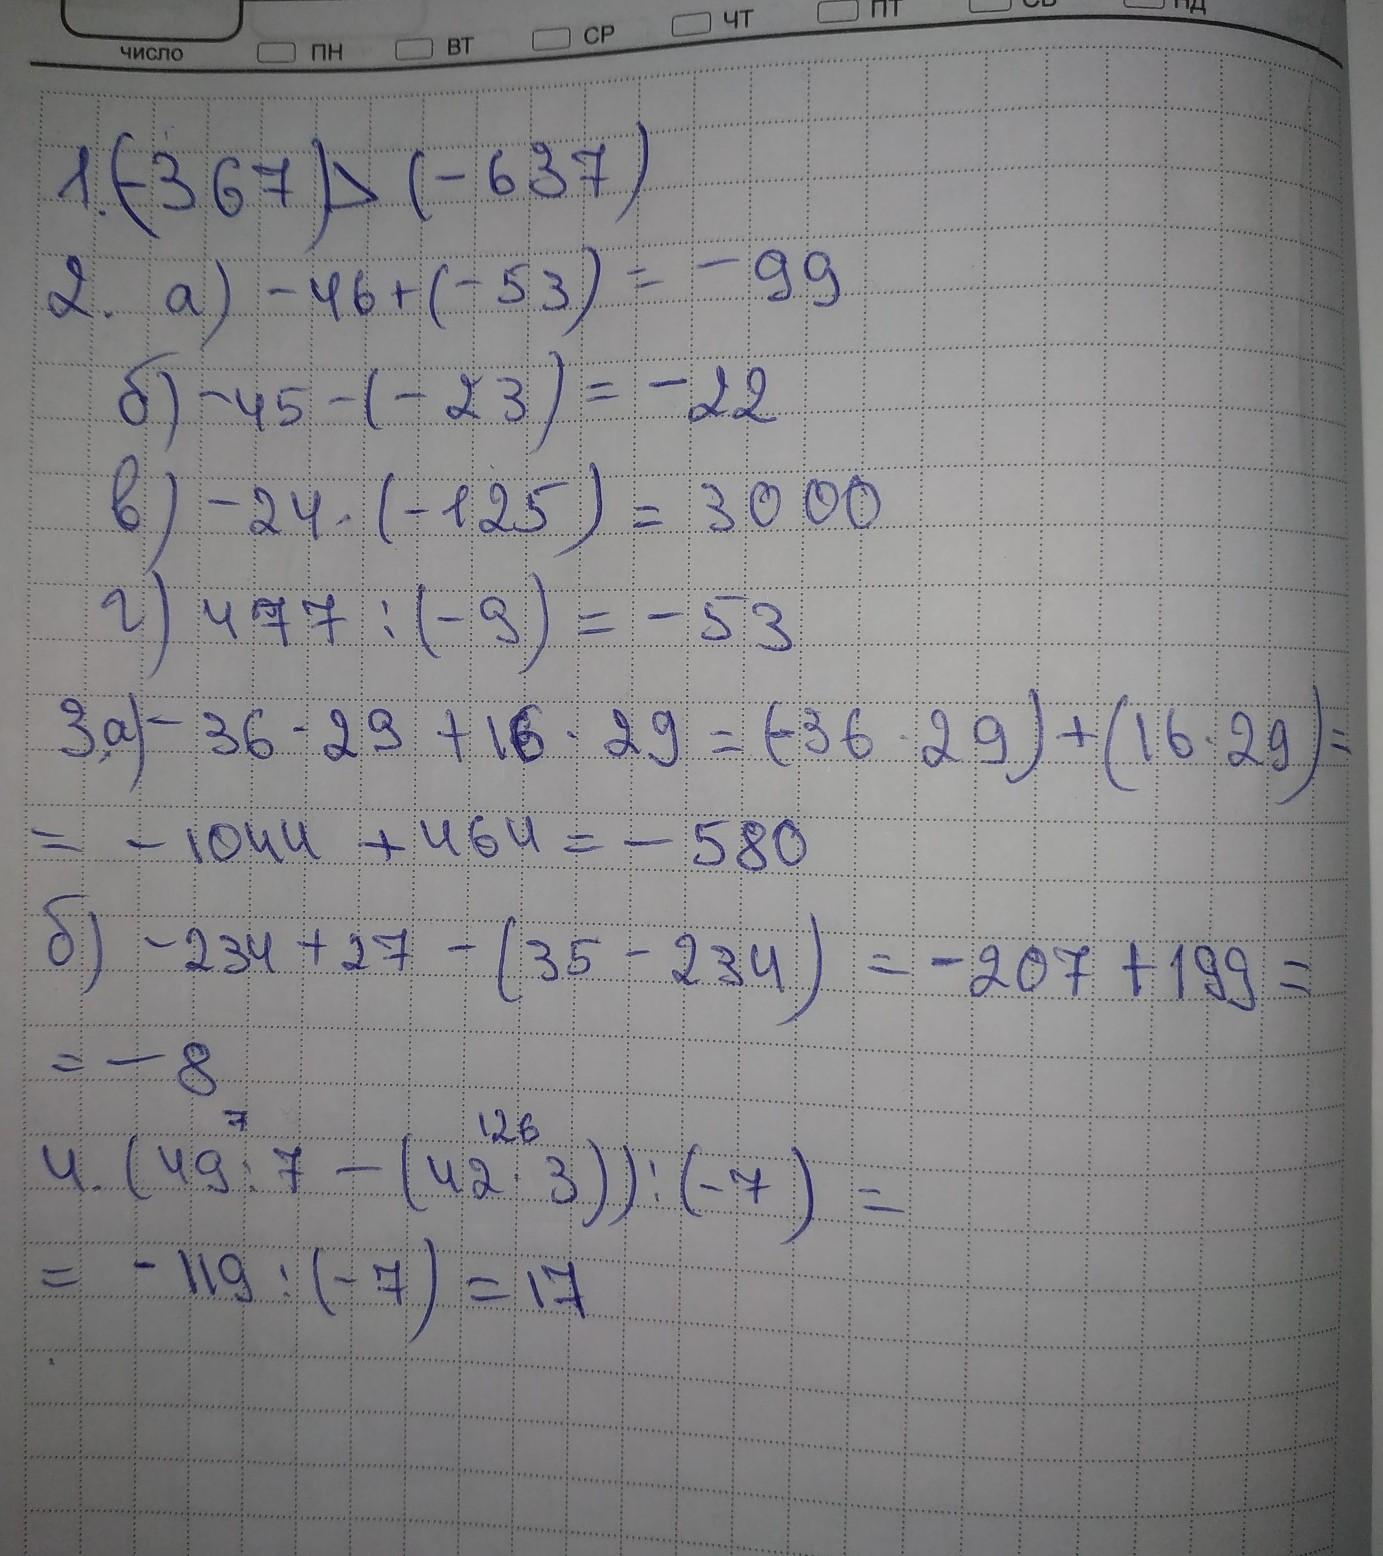 число ПН ВТ СР ЧТ ПТ СБ НД
1. (-367) > (-637)
2. а) -46+(-53) = -99
б) -45-(-23) = -22
в) -24·(-125) = 3000
г) 477:(-9) = -53
3.а) -36·29 +16·29 = (-36·29)+(16·29)=
= -1044 +464 = -580
б) -234+27 -(35-234) = -207+199=
= -8
7 126
4. (49:7-(42·3)):(-7) =
= -119:(-7) = 17